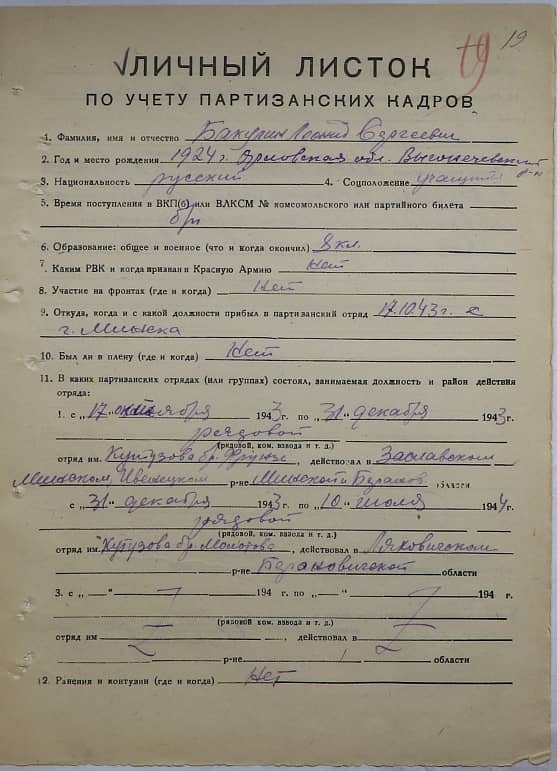 19
19
ЛИЧНЫЙ ЛИСТОК
ПО УЧЕТУ ПАРТИЗАНСКИХ КАДРОВ
1. Фамилия, имя и отчество Бакулин Леонид Сергеевич
2. Год и место рождения 1924 г. Орловская обл.
р-н
3. Национальность русский 4. Соцположение учащийся
5. Время поступления в ВКП(б) или ВЛКСМ № комсомольского или партийного билета
б/п
6. Образование: общее и военное (что и когда окончил) 8 кл.
7. Каким РВК и когда призван в Красную Армию Нет
8. Участие на фронтах (где и когда) Нет
9. Откуда, когда и с какой должности прибыл в партизанский отряд 17.10.43 г. с
г. Минска
10. Был ли в плену (где и когда) Нет
11. В каких партизанских отрядах (или группах) состоял, занимаемая должность и район действия
отряда:
1. с „17“ октября 1943 г. по „31“ декабря 1943 г.
рядовой
(рядовой, ком. взвода и т. д.)
отряд им. Кутузова бр. Фрунзе, действовал в Заславском
Минском, Ивенецком р-не Минской и Баранов. области
с „31“ декабря 1943 г. по „10“ июля 1944 г.
рядовой
(рядовой, ком. взвода и т. д.)
отряд им. Кутузова бр. Молотова, действовал в Ляховичском
р-не Барановичской области
3. с „—“ 194 г. по „—“ 194 г.
(рядовой ком. взвода и т. д.)
отряд им , действовал в
р-не области
12. Ранения и контузии (где и когда) Нет